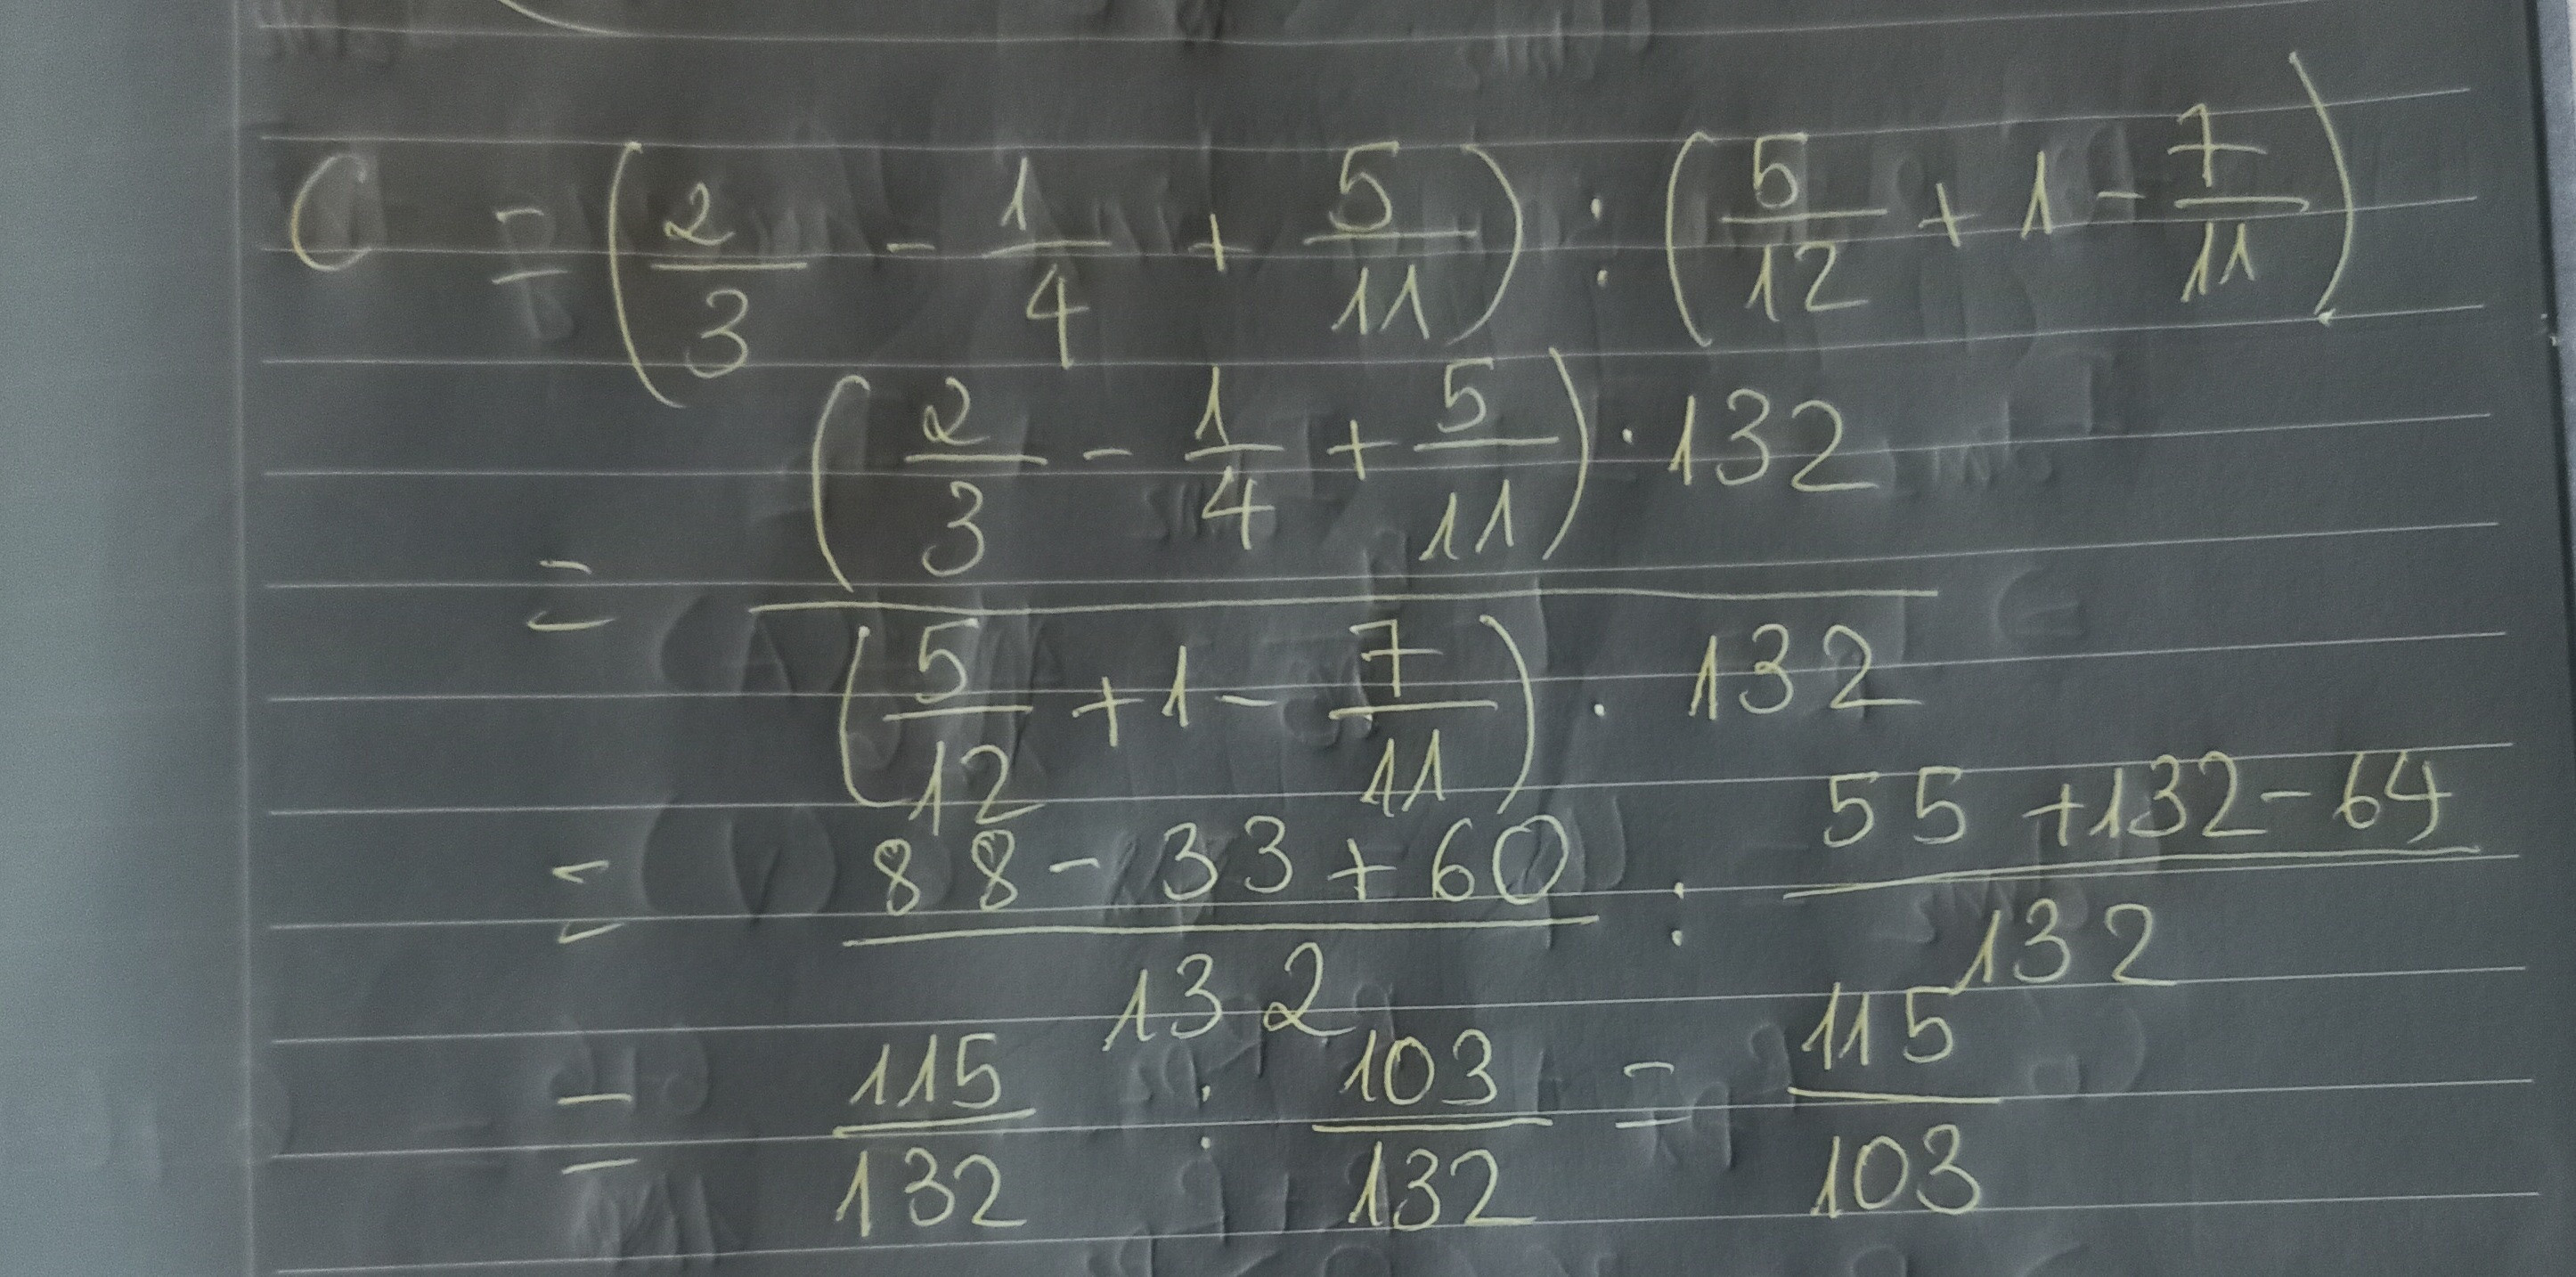 C = (2/3 - 1/4 + 5/11) : (5/12 + 1 - 7/11)
= ((2/3 - 1/4 + 5/11) · 132) / ((5/12 + 1 - 7/11) · 132)
= (88 - 33 + 60)/132 : (55 + 132 - 64)/132
= 115/132 : 103/132 = 115/103